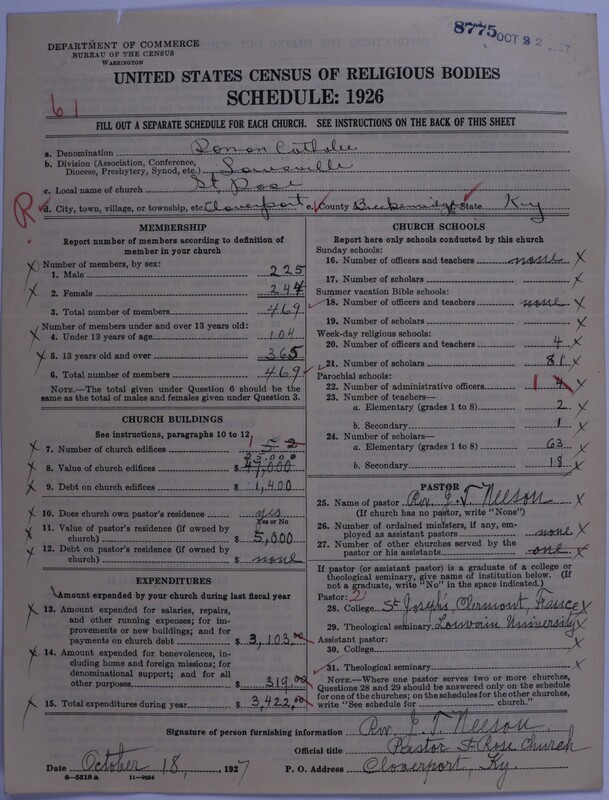 8775 OCT 22
DEPARTMENT OF COMMERCE
BUREAU OF THE CENSUS
WASHINGTON
UNITED STATES CENSUS OF RELIGIOUS BODIES
SCHEDULE: 1926
61
FILL OUT A SEPARATE SCHEDULE FOR EACH CHURCH. SEE INSTRUCTIONS ON THE BACK OF THIS SHEET
a. Denomination Roman Catholic
b. Division (Association, Conference, Diocese, Presbytery, Synod, etc.) Louisville
c. Local name of church St Rose
R d. City, town, village, or township, etc. Cloverport e. County Breckenridge State Ky
MEMBERSHIP
Report number of members according to definition of
member in your church
Number of members, by sex:
1. Male 225
2. Female 244
3. Total number of members 469
Number of members under and over 13 years old:
4. Under 13 years of age 104
5. 13 years old and over 365
6. Total number of members 469
NOTE.—The total given under Question 6 should be
the same as the total of males and females given under Question 3.
CHURCH BUILDINGS
See instructions, paragraphs 10 to 12
7. Number of church edifices
8. Value of church edifices $
9. Debt on church edifices $ 1,400
10. Does church own pastor's residence yes
Yes or No
11. Value of pastor's residence (if owned by
church) $ 5,000
12. Debt on pastor's residence (if owned by
church) $ none
EXPENDITURES
Amount expended by your church during last fiscal year
13. Amount expended for salaries, repairs,
and other running expenses; for im-
provements or new buildings; and for
payments on church debt $ 3,103.00
14. Amount expended for benevolences, in-
cluding home and foreign missions; for
denominational support; and for all
other purposes $ 319.00
15. Total expenditures during year $ 3,422.00
CHURCH SCHOOLS
Report here only schools conducted by this church
Sunday schools:
16. Number of officers and teachers none
17. Number of scholars
Summer vacation Bible schools:
18. Number of officers and teachers none
19. Number of scholars
Week-day religious schools:
20. Number of officers and teachers 4
21. Number of scholars 81
Parochial schools:
22. Number of administrative officers 1
23. Number of teachers—
a. Elementary (grades 1 to 8) 2
b. Secondary 1
24. Number of scholars—
a. Elementary (grades 1 to 8) 63
b. Secondary 18
PASTOR
25. Name of pastor Rev. J. T. Neeson
(If church has no pastor, write "None")
26. Number of ordained ministers, if any, em-
ployed as assistant pastors none
27. Number of other churches served by the
pastor or his assistants one
If pastor (or assistant pastor) is a graduate of a college or
theological seminary, give name of institution below. (If
not a graduate, write "No" in the space indicated.)
Pastor: 2
28. College St Joseph's, Clermont, France
29. Theological seminary Louvain University
Assistant pastor:
30. College
31. Theological seminary
NOTE.—Where one pastor serves two or more churches,
Questions 28 and 29 should be answered only on the schedule
for one of the churches; on the schedules for the other churches,
write "See schedule for church."
Signature of person furnishing information Rev. J. T. Neeson
Official title Pastor St Rose Church
Date October 18, 1927 P. O. Address Cloverport, Ky.
8—5818 a 11—9024